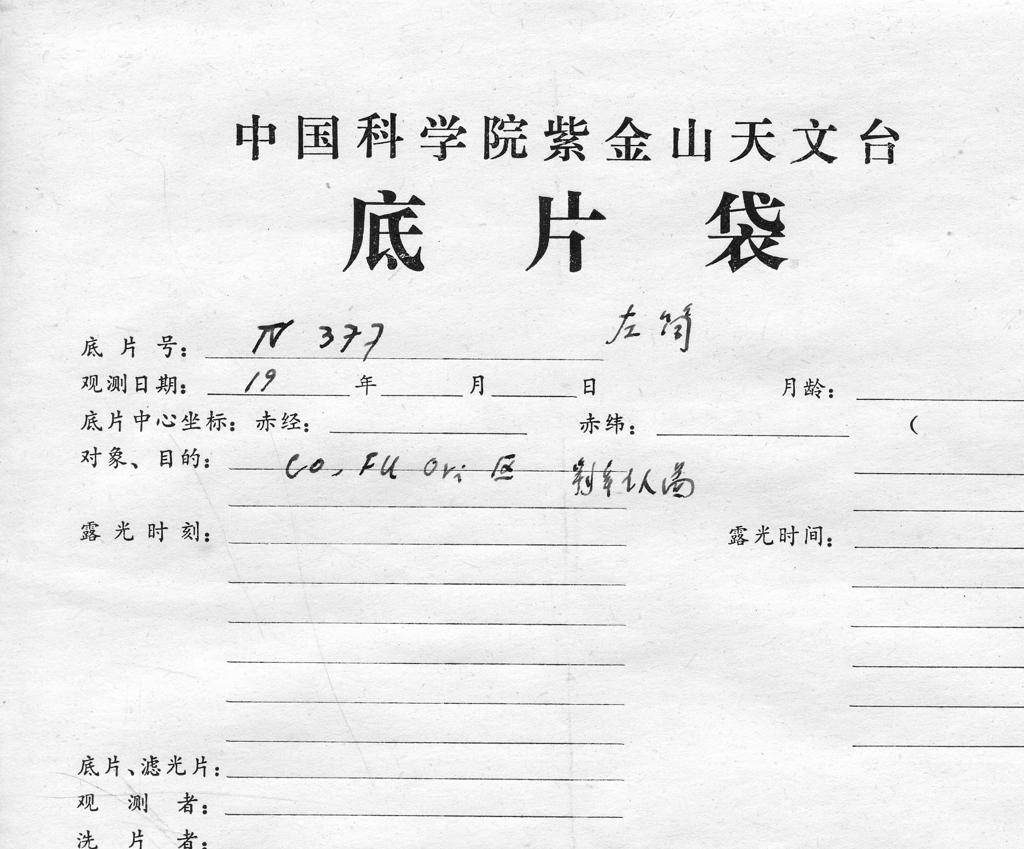 中国科学院紫金山天文台
底片袋
底片号： IV 377 左筒
观测日期： 19 年 月 日 月龄：
底片中心坐标：赤经： 赤纬： (
对象、目的： CO, FU Ori 区
露光时刻： 露光时间：
底片、滤光片：
观测者：
洗片者：